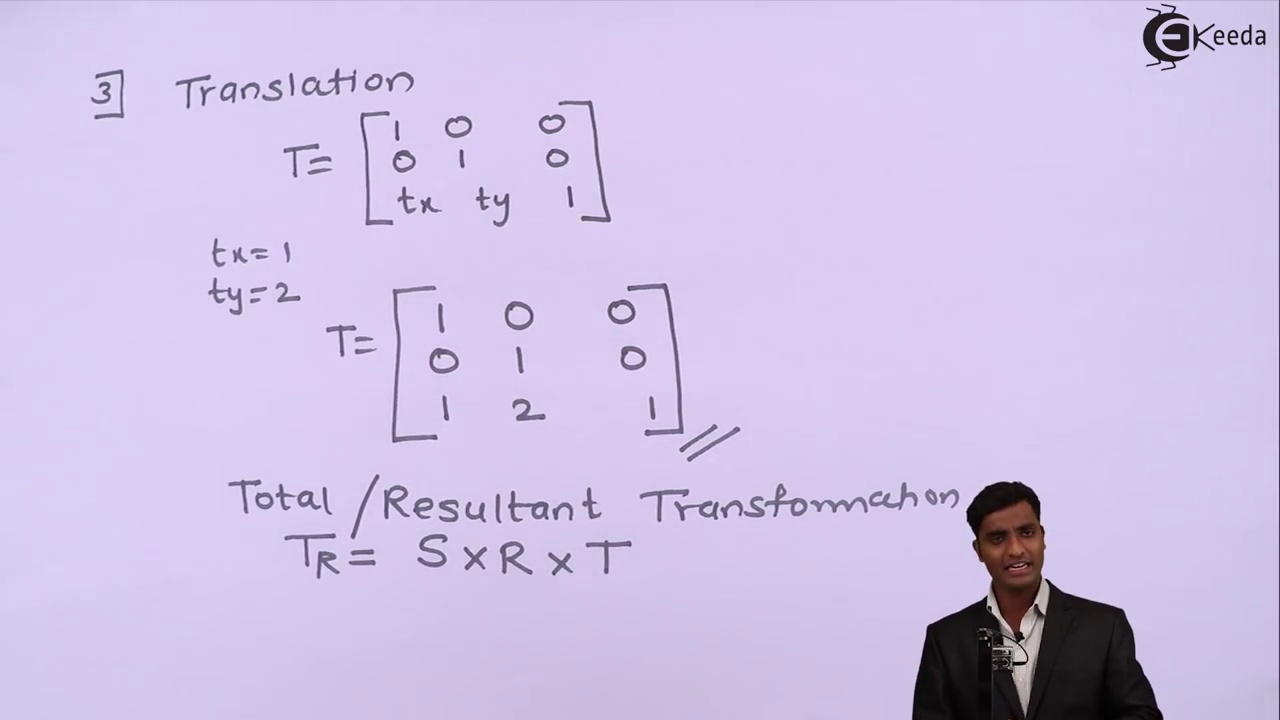 EKeeda
3] Translation
T= [1 0 0
0 1 0
tx ty 1]
tx=1
ty=2
T= [1 0 0
0 1 0
1 2 1]
Total/Resultant Transformation
TR= S×R×T